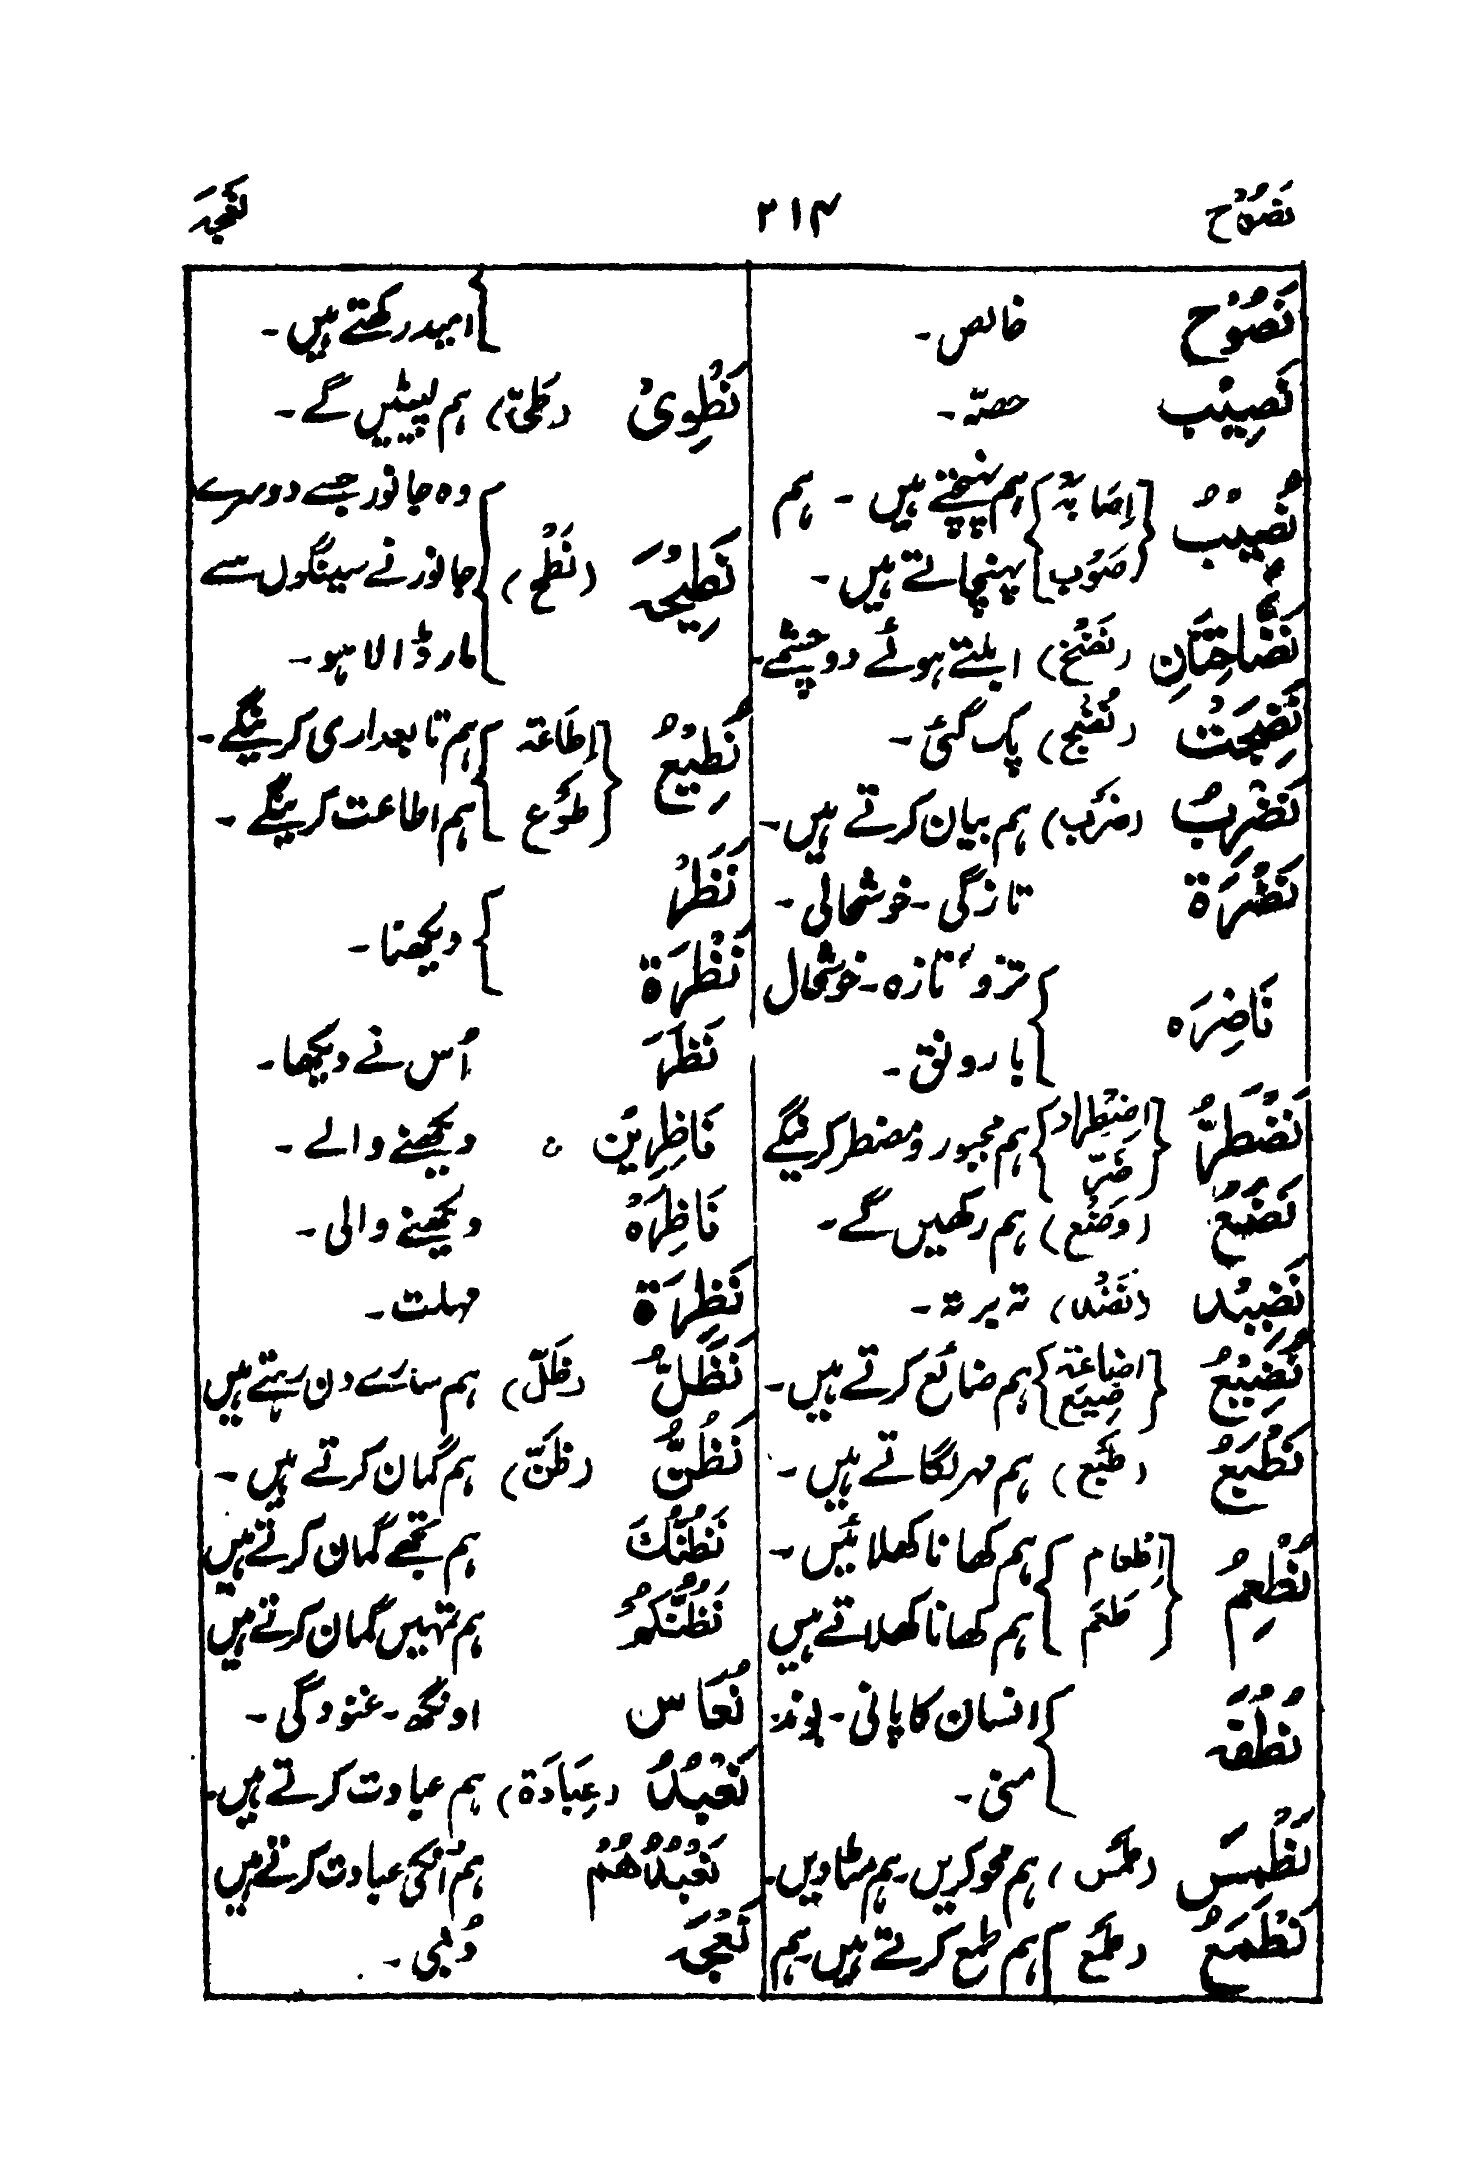 نَصُوْح ۲۱۴ نَعْجَہ
نَصُوْح خالص۔
نَصِیْب حصّہ۔
نُصِیْبُ (اِصَابَۃ صَوْب) ہم پہنچتے ہیں۔ ہم
پہنچاتے ہیں۔
نَضَّاخَتَانِ (نَضْخ) ابلتے ہوئے دو چشمے۔
نَضِجَتْ (نَضْج) پک گئی۔
نَضْرِبُ (ضَرْب) ہم بیان کرتے ہیں۔
نَضْرَۃ تازگی۔ خوشحالی۔
نَاضِرَہ تر و تازہ۔ خوشحال
با رونق۔
نَضْطَرُّ (اِضْطِرَاد ضَرّ) ہم مجبور و مضطر کرینگے
نَضَعُ (وَضْع) ہم رکھیں گے۔
نَضِیْد (نَضْد) تہ بر تہ۔
نُضِیْعُ (اضاعۃ ضَیَع) ہم ضائع کرتے ہیں۔
نَطْبَعُ (طَبْع) ہم مہر لگاتے ہیں۔
نُطْعِمُ (اِطْعَام طَعَم) ہم کھانا کھلائیں۔
ہم کھانا کھلاتے ہیں
نُطْفَۃ انسان کا پانی۔ بوند
منی۔
نَطْمِسَ (طَمْس) ہم محو کریں۔ ہم مٹا دیں۔
نَطْمَعُ (طَمْع) ہم طمع کرتے ہیں۔ ہم
امید رکھتے ہیں۔
نَطْوِیْ (طَیّ) ہم لپیٹیں گے۔
نَطِیْحَہ (نَطْح) وہ جانور جسے دوسرے
جانور نے سینگوں سے
مار ڈالا ہو۔
نُطِیْعُ (اِطَاعَۃ طَوْع) ہم تابعداری کرینگے۔
ہم اطاعت کرینگے۔
نَظَرْ
نَظْرَۃ دیکھنا۔
نَظَرَ اُس نے دیکھا۔
نَاظِرِیْن دیکھنے والے۔
نَاظِرَہْ دیکھنے والی۔
نَظِرَۃ مہلت۔
نَظَلُّ (ظَلّ) ہم سارے دن رہتے ہیں
نَظُنُّ (ظَنّ) ہم گمان کرتے ہیں۔
نَظُنُّكَ ہم تجھے گمان کرتے ہیں
نَظُنُّکُمْ ہم تمہیں گمان کرتے ہیں
نُعَاس اونگھ۔ غنودگی۔
نَعْبُدُ (عِبَادَۃ) ہم عبادت کرتے ہیں۔
نَعْبُدُھُمْ ہم اُنکی عبادت کرتے ہیں
نَعْجَہ دُنبی۔